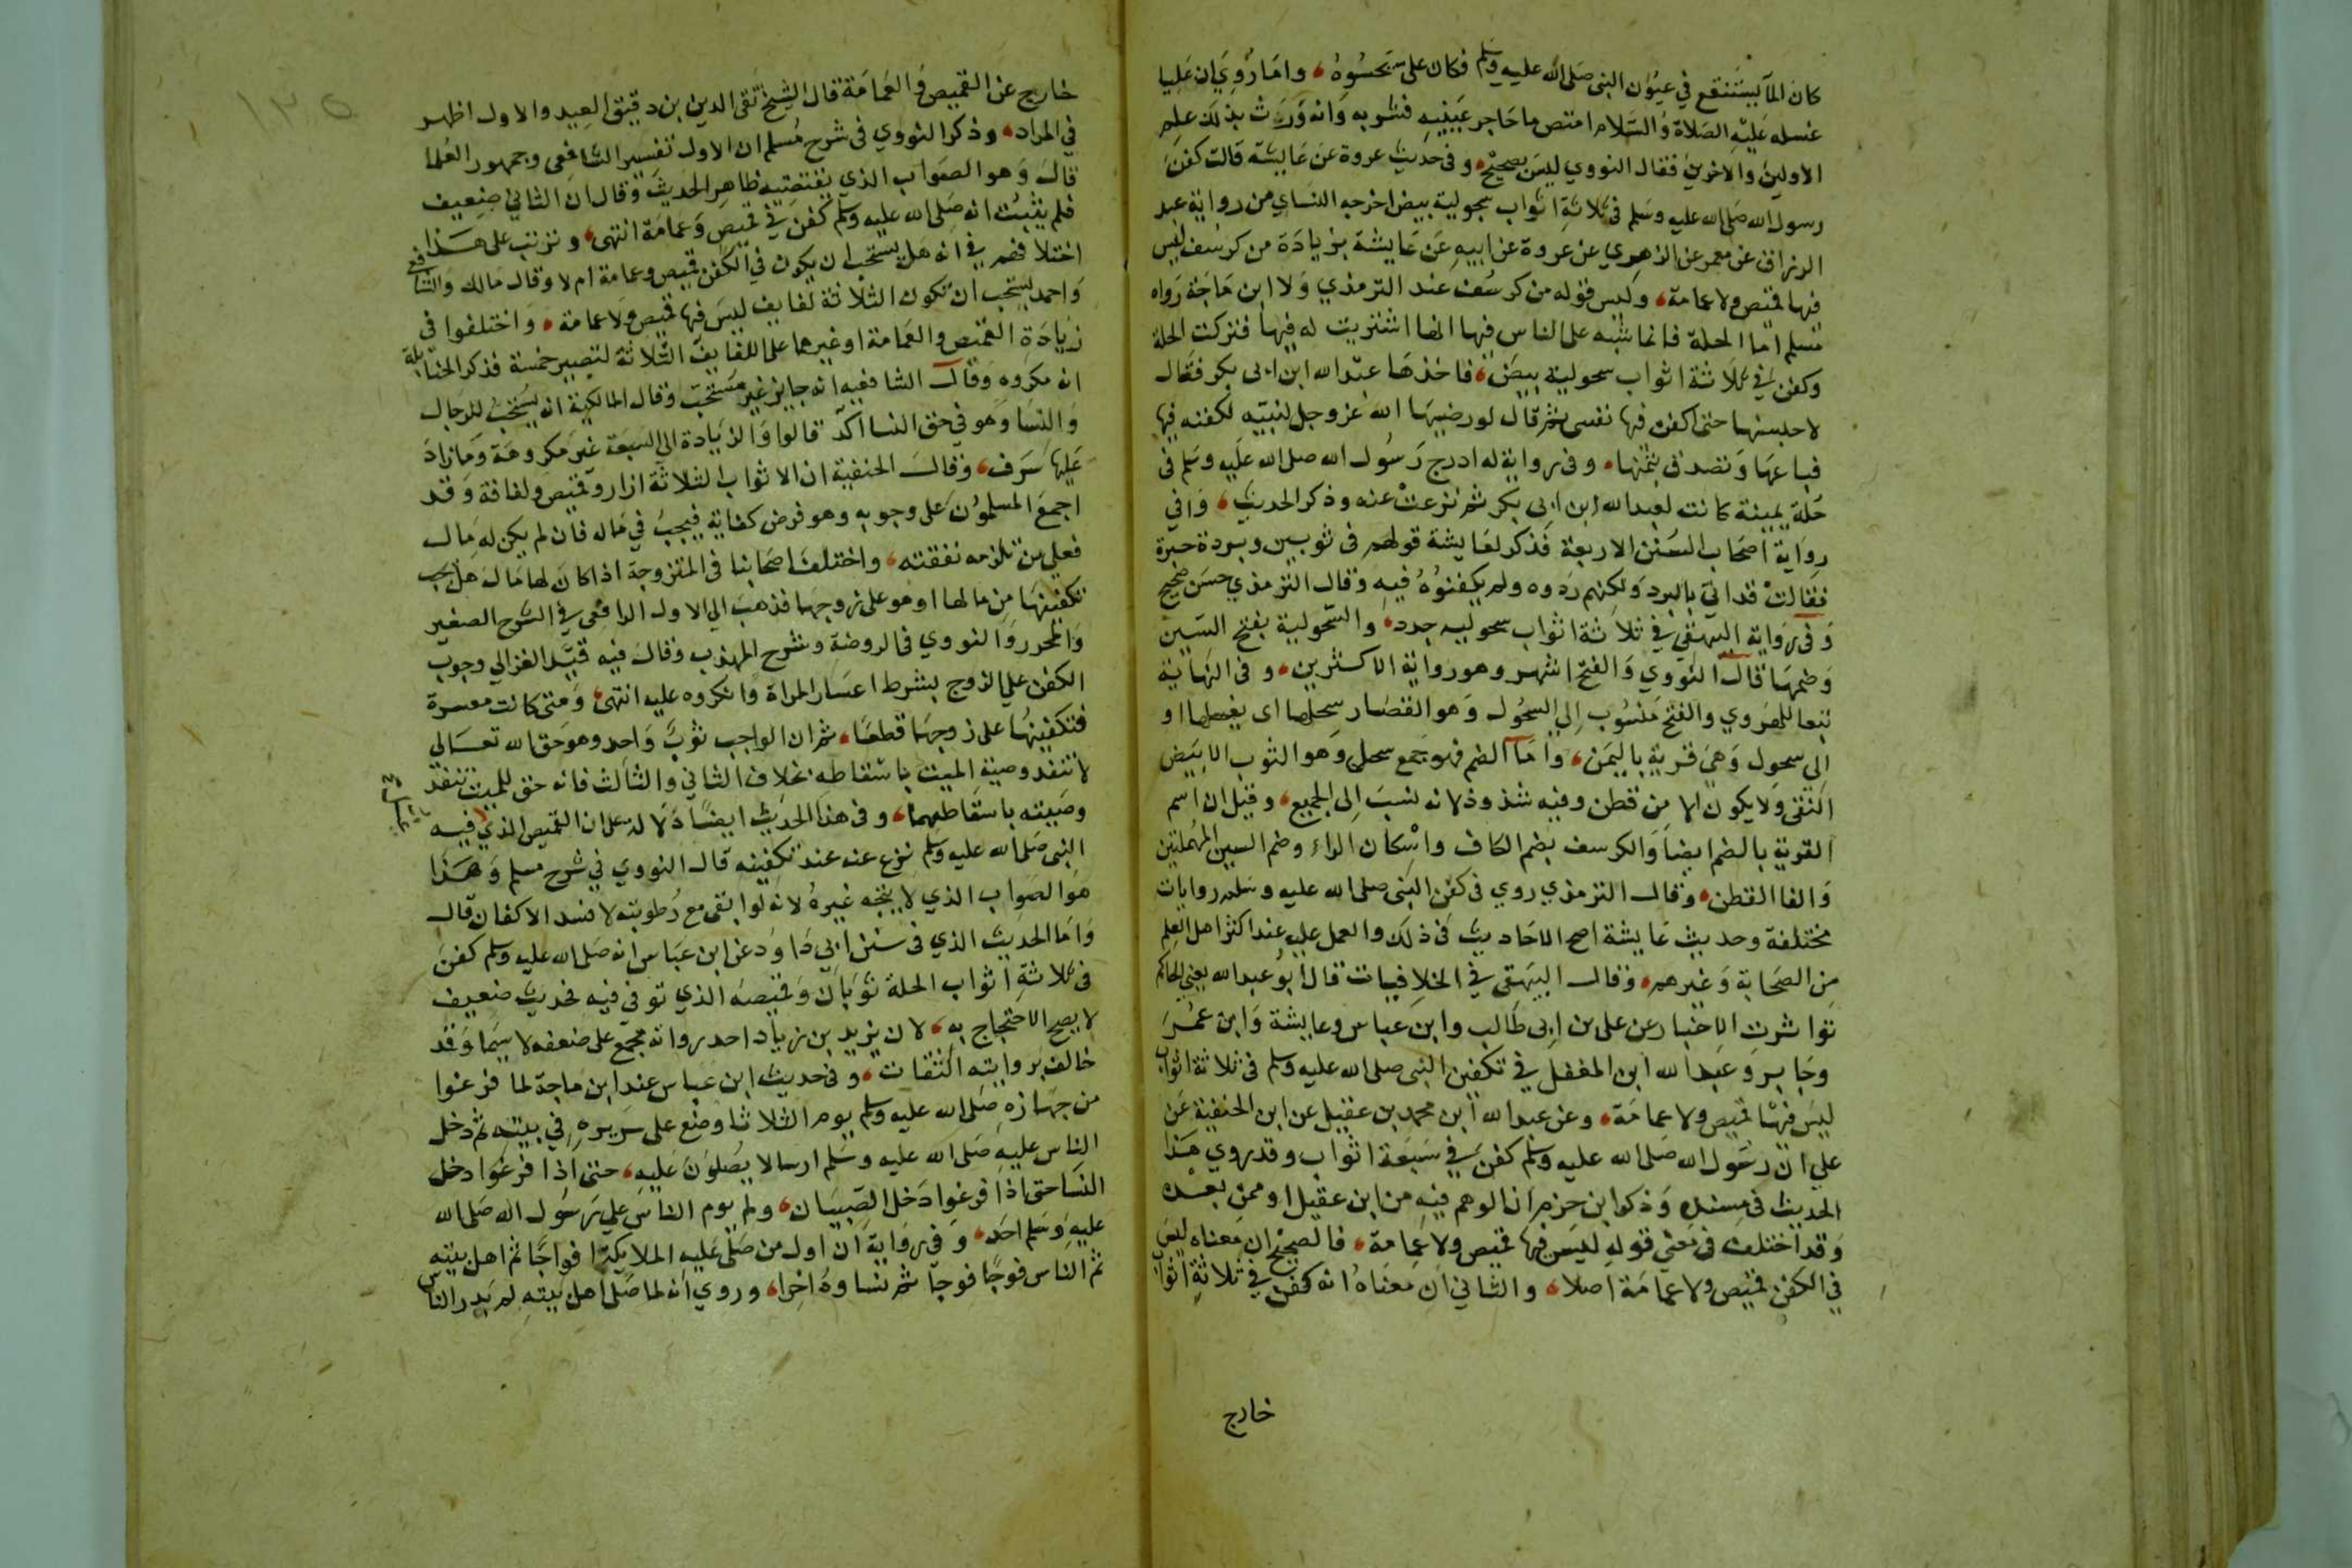 كان الماء يستنقع في عيون النبي صلى الله عليه وسلم فكان على يحسوه، واما روي ان عليا
غسله عليه الصلاة والسلام امتص ماحاجر عينيه فشربه وانه ورث بذلك علم
الاولين والاخرين فقال النووي ليس بصحيح، وفي حديث عروة عن عايشة قالت كفن
رسول الله صلى الله عليه وسلم في ثلاثة اثواب سحولية بيض اخرجه النساي من رواية عبد
الرزاق عن معمر عن الزهري عن عروة عن ابيه عن عايشة بزيادة من كرسف ليس
فيها قميص ولا عمامة، وليس قوله من كرسف عند الترمذي ولا ابن ماجة رواه
مسلم اما الحلة فانما شبه على الناس فيها انها اشتريت له فيها فتركت الحلة
وكفن في ثلاثة اثواب سحولية بيض، فاخذها عبد الله ابن ابي بكر فقال
لاحبسنها حتى اكفن فيها نفسي ثم قال لو رضيها الله عز وجل لنبيه لكفنه فيها
فباعها وتصدق بثمنها، وفي رواية له ادرج رسول الله صلى الله عليه وسلم في
حلة يمينة كانت لعبد الله ابن ابي بكر ثم نزعت عنه وذكر الحديث، وافي
رواية اصحاب السنن الاربعة فذكر لعايشة قولهم في ثوبين وبردة حبرة
فقالت قد اتي بالبرد ولكنهم ردوه ولم يكفنوه فيه وقال الترمذي حسن صحيح
وفي رواية البيهقي في ثلاثة اثواب سحوليه جدد، والسحولية بفتح السين
وضمها قال النووي والفتح اشهر وهو رواية الاكثرين، وفي النهاية
تبعا للهروي والفتح منسوب الى السحول وهو القصار يسحلها اي يغسلها او
الى سحول وهي قرية باليمن، واما الضم فهو جمع سحل وهو الثوب الابيض
النقي ولا يكون الا من قطن وفيه شذوذ لانه نسب الى الجمع، وقيل ان اسم
القرية بالضم ايضا والكرسف بضم الكاف واسكان الراء وضم السين المهملتين
والفا القطن، وقال الترمذي روي في كفن النبي صلى الله عليه وسلم روايات
مختلفة وحديث عايشة اصح الاحاديث في ذلك والعمل عليه عند اكثر اهل العلم
من الصحابة وغيرهم، وقال البيهقي في الخلافيات قال ابو عبد الله يعني الحاكم
تواترت الاخبار عن علي بن ابي طالب وابن عباس وعايشة وابن عمر
وجابر وعبد الله ابن المغفل في تكفين النبي صلى الله عليه وسلم في ثلاثة اثواب
ليس فيها قميص ولا عمامة، وعن عبد الله ابن محمد بن عقيل عن ابن الحنفية عن
علي ان رسول الله صلى الله عليه وسلم كفن في سبعة اثواب وقد روي هذا
الحديث في مسنده وذكر ابن حزم ان الوهم فيه من ابن عقيل او ممن بعده
وقد اختلف في معنى قوله ليس فيها قميص ولا عمامة، فالصحيح ان معناه ليس
في الكفن قميص ولا عمامة اصلا، والثاني ان معناه انه كفن في ثلاثة اثواب
خارج
١٣٥
خارج عن القميص والعمامة قال الشيخ تقي الدين بن دقيق العيد والاول اظهر
في المراد، وذكر النووي في شرح مسلم ان الاول تفسير الشافعي وجمهور العلما
قال وهو الصواب الذي يقتضيه ظاهر الحديث وقال ان الثاني ضعيف
فلم يثبت انه صلى الله عليه وسلم كفن في قميص وعمامة انتهى، وترتب على هذا
اختلافهم في انه هل يستحب ان يكون في الكفن قميص وعمامة ام لا وقال مالك والشافعي
واحمد يستحب ان تكون الثلاثة لفايف ليس فيها قميص ولا عمامة، واختلفوا في
زيادة القميص والعمامة او غيرهما على اللفايف الثلاثة لتصير خمسة فذكر الحنابلة
انه مكروه وقال الشافعيه انه جايز غير مستحب وقال المالكية انه يستحب للرجال
والنسا وهو في حق النسا اكد قالوا والزيادة الى السبعة غير مكروهة وما زاد
عليها سرف، وقال الحنفية ان الاثواب الثلاثة ازار وقميص ولفافة وقد
اجمع المسلمون على وجوبه وهو فرض كفاية فيجب في ماله فان لم يكن له مال
فعلى من تلزمه نفقته، واختلف اصحابنا في المتزوجة اذا كان لها مال هل يجب
تكفينها من مالها او هو على زوجها فذهب الى الاول الرافعي في الشرح الصغير
والمحرر والنووي في الروضة وشرح المهذب وقال فيه قيد الغزالي وجوب
الكفن على الزوج بشرط اعسار المراة وانكروه عليه انتهى، ومتى كانت معسرة
فتكفينها على زوجها قطعا، ثم ان الواجب ثوب واحد وهو حق الله تعالى
لا تنفذ وصية الميت باسقاطه بخلاف الثاني والثالث فانه حق للميت تنفذ
وصيته باسقاطهما، وفي هذا الحديث ايضا دلالة على ان القميص الذي فيه
النبي صلى الله عليه وسلم نزع عنه عند تكفينه قال النووي في شرح مسلم وهذا
هو الصواب الذي لا يتجه غيره لانه لو ابقي مع رطوبته لافسد الاكفان قال
واما الحديث الذي في سنن ابي داود عن ابن عباس انه صلى الله عليه وسلم كفن
في ثلاثة اثواب الحلة ثوبان وقميصه الذي توفي فيه فحديث ضعيف
لا يصح الاحتجاج به، لان يزيد بن زياد احد رواته مجمع على ضعفه لا سيما وقد
خالف بروايته الثقات، وفي حديث ابن عباس عند ابن ماجة لما فرغوا
من جهازه صلى الله عليه وسلم يوم الثلاثا وضع على سريره في بيته ثم دخل
الناس عليه صلى الله عليه وسلم ارسالا يصلون عليه، حتى اذا فرغوا دخل
النسا حتى اذا فرغوا دخل الصبيان، ولم يوم الناس على رسول الله صلى الله
عليه وسلم احد، وفي رواية ان اول من صلى عليه الملايكة افواجا ثم اهل بيته
ثم الناس فوجا فوجا ثم نساوه اخرا، وروي انه لما صلى اهل بيته لم يدر الناس